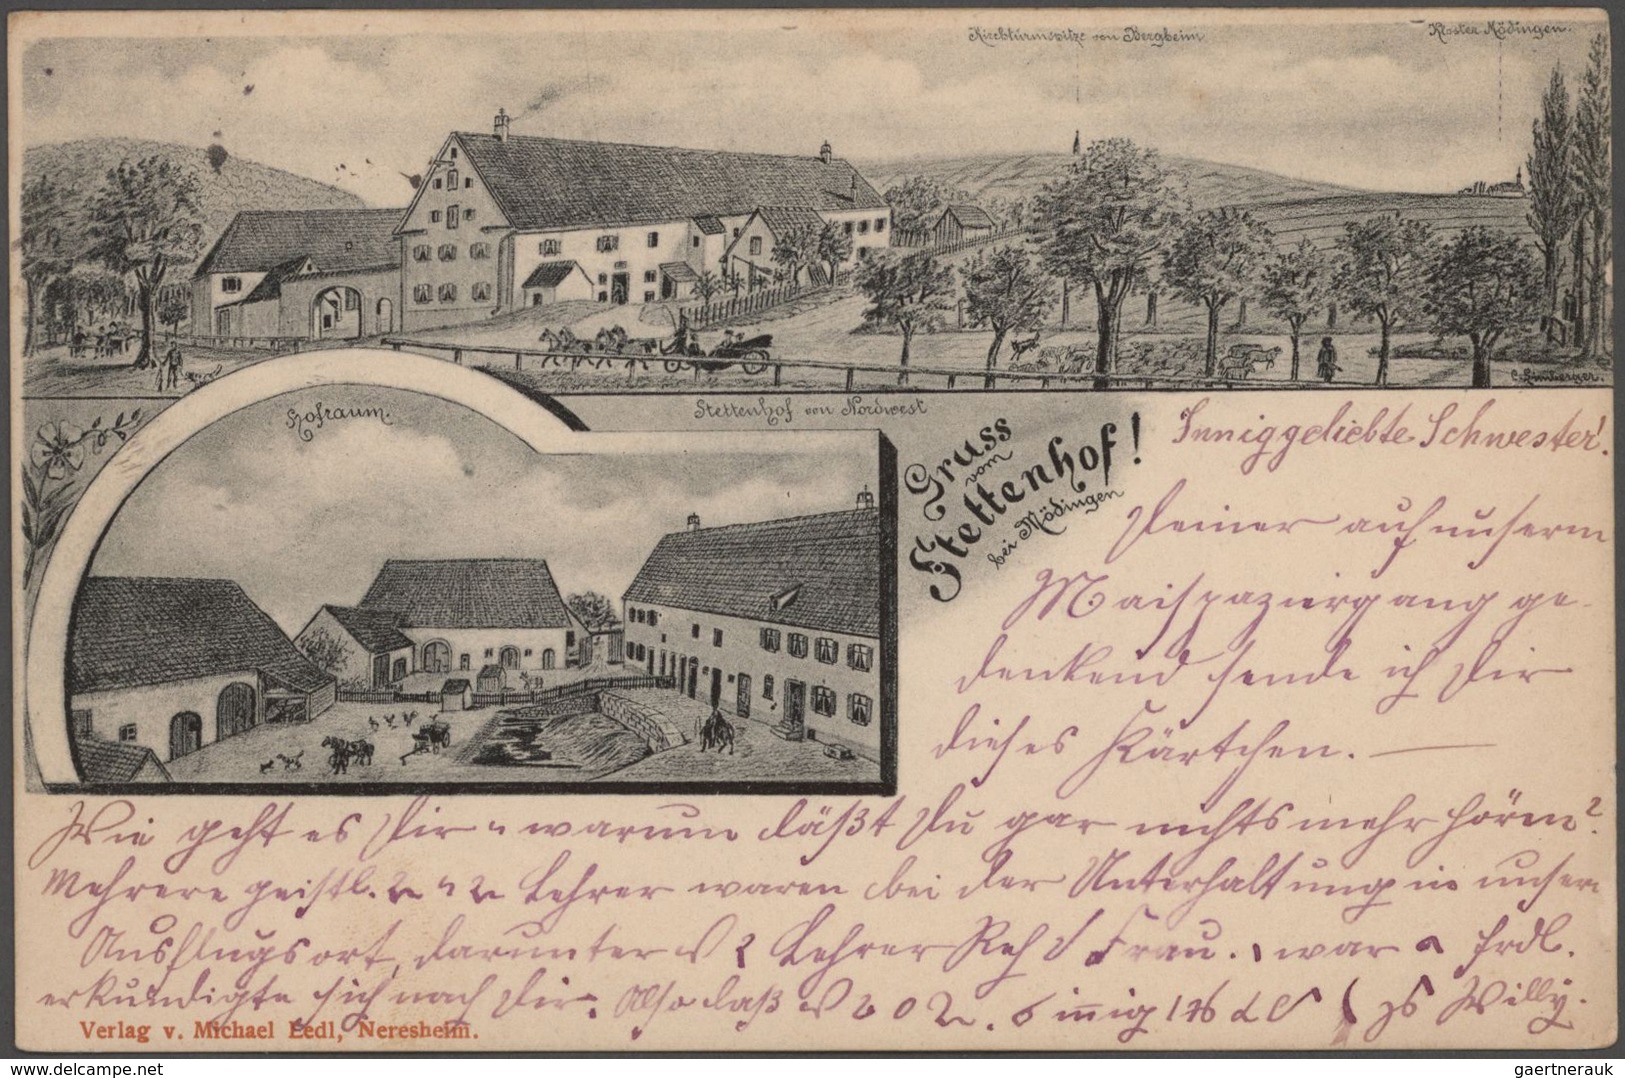 Kirchturmspitze von Bergheim
Kloster Mödingen.
C. Limberger.
Hofraum.
Stettenhof von Nordwest
Gruss
vom
Stettenhof!
bei Mödingen
Inniggeliebte Schwester!
Deiner auf unserm
Maispaziergang ge-
denkend sende ich Dir
dieses Kärtchen. —
Wie geht es Dir u warum läßt Du gar nichts mehr hören?
Mehrere geistl. Lehrer waren bei der Unterhaltung in unserm
Ausflugsort, darunter Lehrer Reh Frau. war frdl.
erkundigte sich nach Dir. Also daß innig Willy.
Verlag v. Michael Ledl, Neresheim.
gaertnerauk